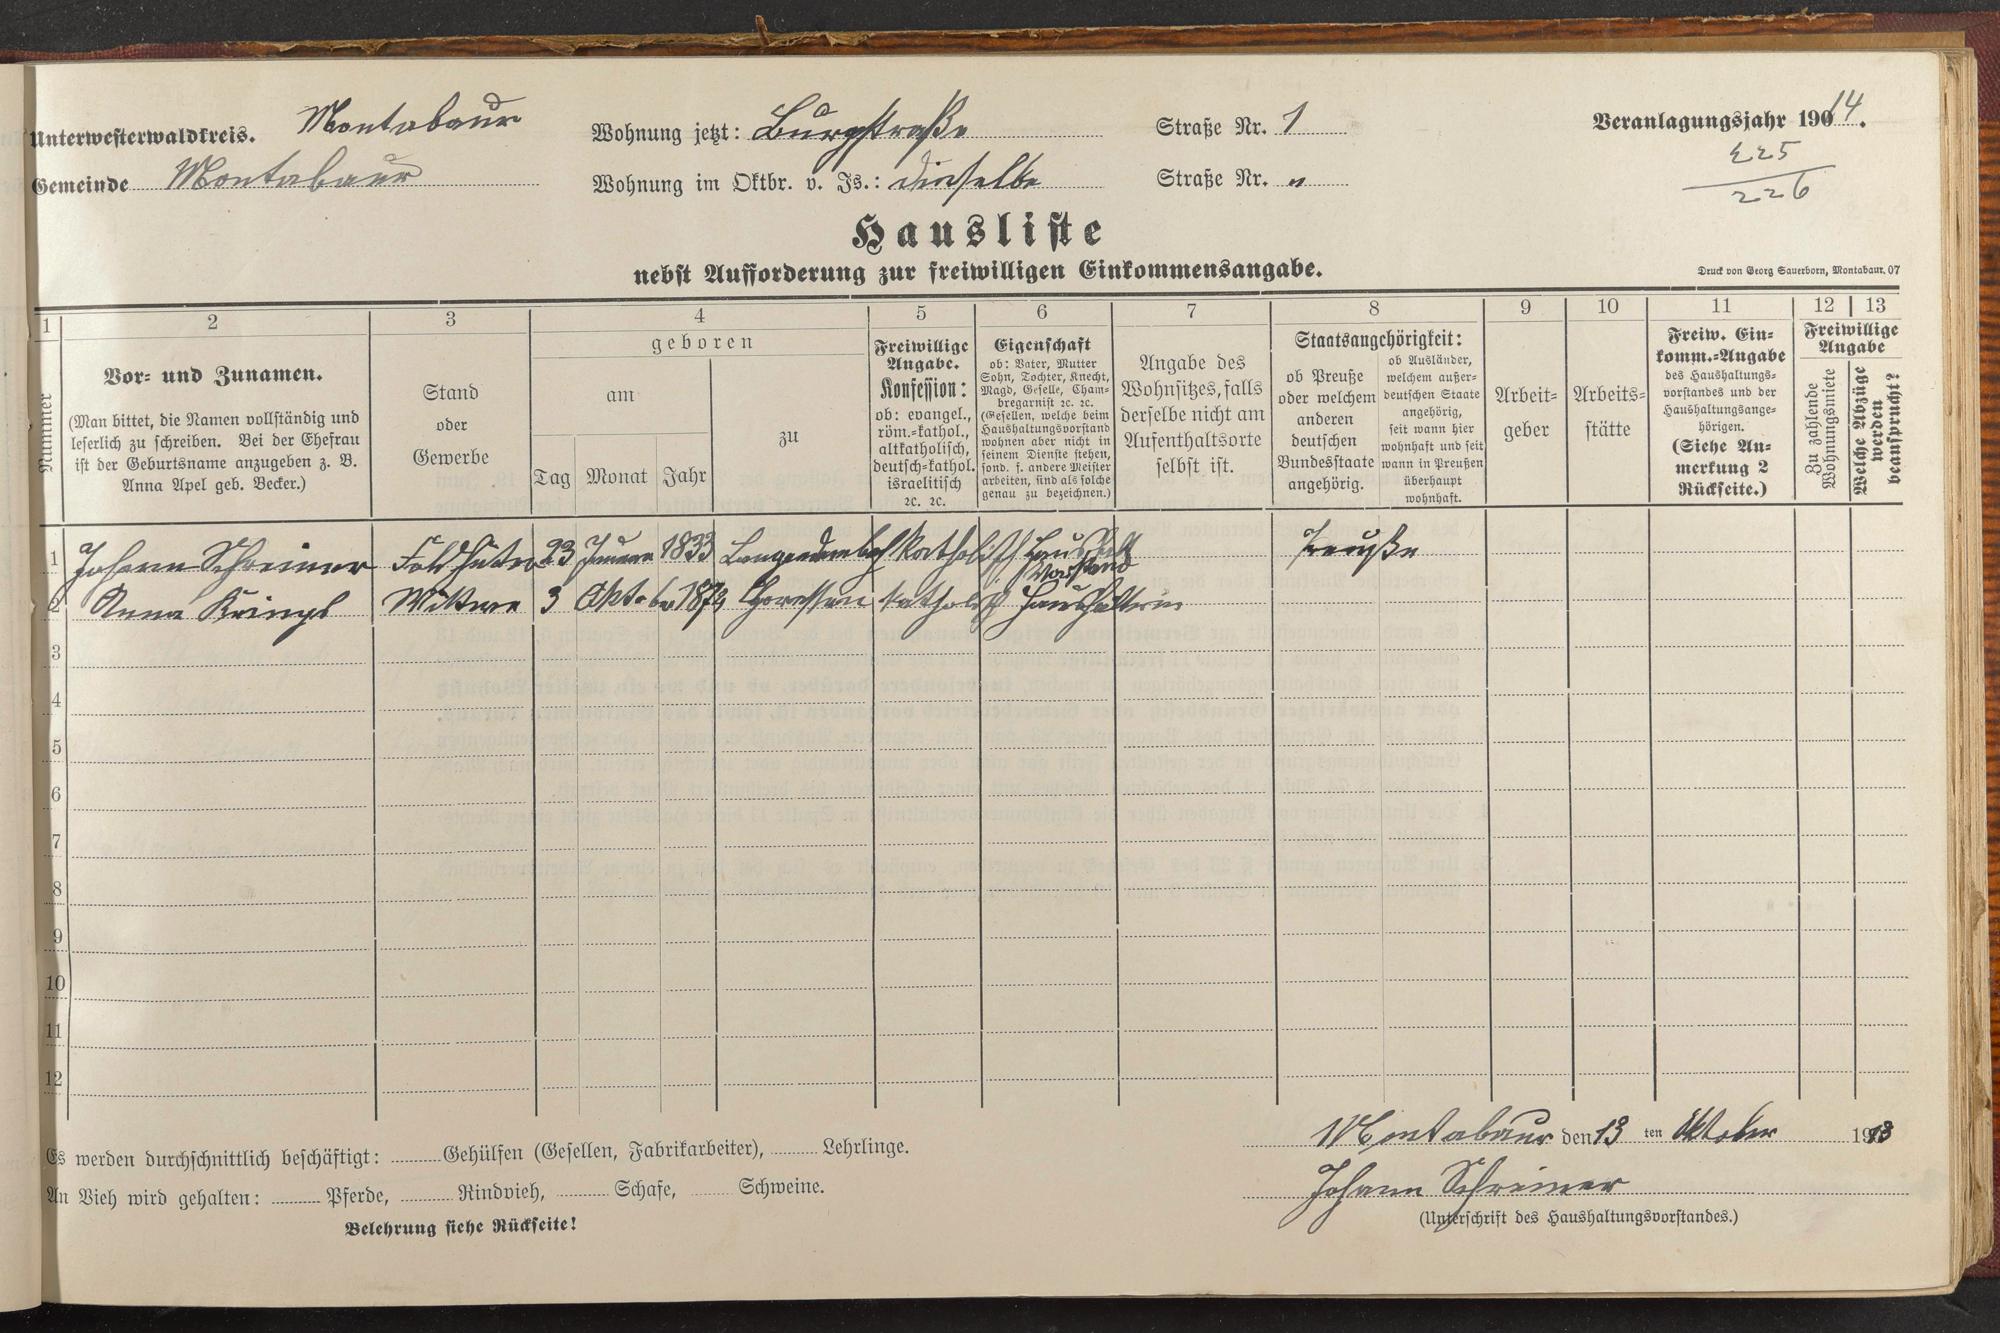 Unterwesterwaldkreis. Montabaur
Gemeinde Montabaur
Wohnung jetzt: Burgstraße Straße Nr. 1
Wohnung im Oktbr. v. Js.: dieselbe Straße Nr. "
Veranlagungsjahr 19014.
225
226
Hausliste
nebst Aufforderung zur freiwilligen Einkommensangabe.
Druck von Georg Sauerborn, Montabaur. 07
1 2 3 4 5 6 7 8 9 10 11 12 13
Nummer
Vor- und Zunamen.
(Man bittet, die Namen vollständig und
leserlich zu schreiben. Bei der Ehefrau
ist der Geburtsname anzugeben z. B.
Anna Apel geb. Becker.)
Stand
oder
Gewerbe
geboren
am
Tag Monat Jahr
zu
Freiwillige
Angabe.
Konfession:
ob: evangel.,
röm.-kathol.,
altkatholisch,
deutsch-kathol.
israelitisch
ꝛc. ꝛc.
Eigenschaft
ob: Vater, Mutter
Sohn, Tochter, Knecht,
Magd, Geselle, Cham-
bregarnist ꝛc. ꝛc.
(Gesellen, welche beim
Haushaltungsvorstand
wohnen aber nicht in
seinem Dienste stehen,
sond. f. andere Meister
arbeiten, sind als solche
genau zu bezeichnen.)
Angabe des
Wohnsitzes, falls
derselbe nicht am
Aufenthaltsorte
selbst ist.
Staatsangehörigkeit:
ob Preuße
oder welchem
anderen
deutschen
Bundesstaate
angehörig.
ob Ausländer,
welchem außer-
deutschen Staate
angehörig,
seit wann hier
wohnhaft und seit
wann in Preußen
überhaupt
wohnhaft.
Arbeit-
geber
Arbeits-
stätte
Freiw. Ein-
komm.-Angabe
des Haushaltungs-
vorstandes und der
Haushaltungsange-
hörigen.
(Siehe An-
merkung 2
Rückseite.)
Freiwillige
Angabe
Zu zahlende
Wohnungsmiete
Welche Abzüge
werden
beansprucht?
1 Johann Schreiner Feldhüter 23 Januar 1833 Katholisch Haushalt
Vorstand Preuße
2 Anna Wittwe 3 Oktober Horressen katholisch Haushälterin
3
4
5
6
7
8
9
10
11
12
Es werden durchschnittlich beschäftigt: Gehülfen (Gesellen, Fabrikarbeiter), Lehrlinge.
An Vieh wird gehalten: Pferde, Rindvieh, Schafe, Schweine.
Belehrung siehe Rückseite!
Montabaur den 13 ten Oktober 1913
Johann Schreiner
(Unterschrift des Haushaltungsvorstandes.)